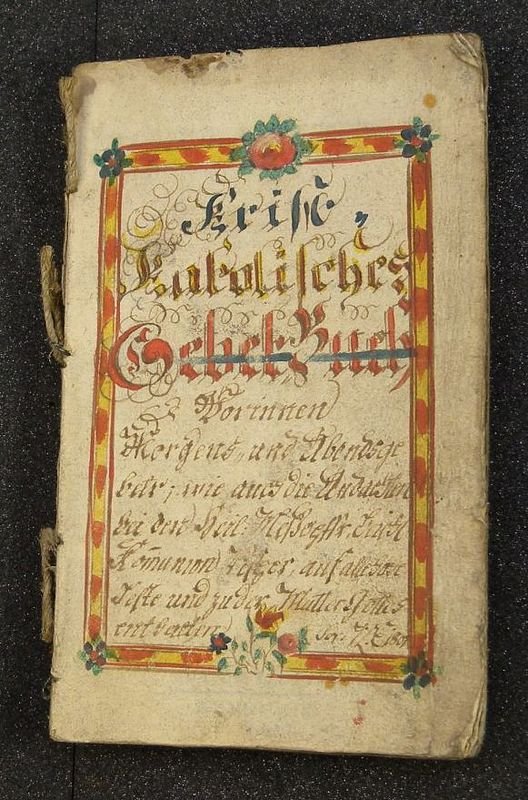 Krist-
Katolisches
Gebet Buch
Worinnen
Morgens, und Abendsge
betr, wie auch die Andachten
bei der Heil. Meßopffr, Beicht
Kommunion auf alle
Feste und zu der Mutter Gottes
enthalten